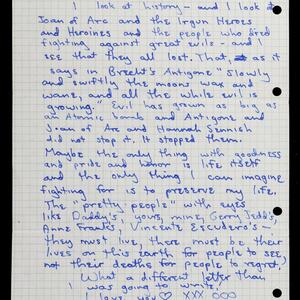 I look at history - and I look at
Joan of Arc and the Irgun Heroes
and Heroines and the people who died
fighting against great evils - and I
see that they all lost. That, as it
says in Brecht's Antigone "Slowly
and swiftly the moons wax and
wane, and all the while evil is
growing." Evil has grown as big as
an Atomic bomb and Antigone and
Joan of Arc and Hannah Sennish
did not stop it. It stopped them.
Maybe the only thing with goodness
and pride and honor is life itself
and the only thing I can imagine
fighting for is to preserve my life.
The "pretty people" with eyes
like Daddy's, yours, mine, Gerry Jedd's,
Anne Frank's, Vincente Escudero's -
they must live, there must be their
lives on this earth for people to see,
not their deaths for people to regret.
What a different letter than
I was going to write.
I love you ♡ XXX OOO